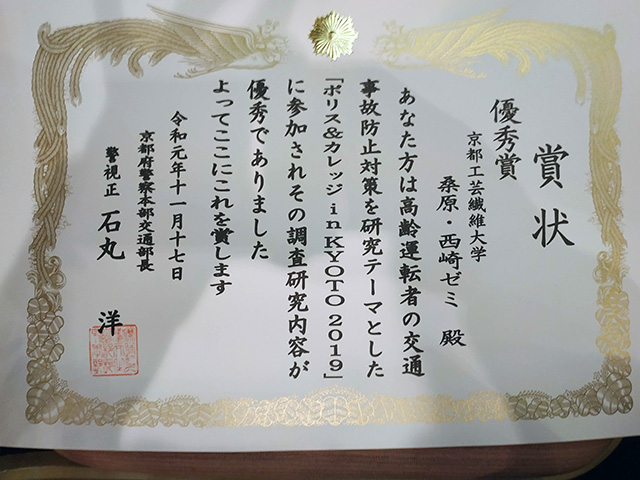 賞状
優秀賞
京都工芸繊維大学
桑原・西崎ゼミ 殿
あなた方は高齢運転者の交通
事故防止対策を研究テーマとした
「ポリス&カレッジinKYOTO2019」
に参加されその調査研究内容が
優秀でありました
よってここにこれを賞します
令和元年十一月十七日
京都府警察本部交通部長
警視正 石丸 洋